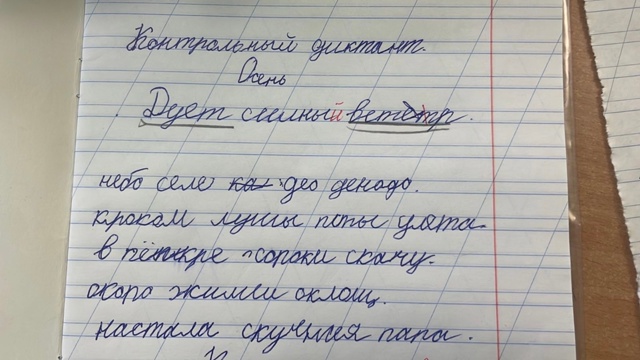 Контрольный диктант.
Осень
Дует сильный ветер.
небо селе део денодо.
кроком лушы попы улята.
в пёнкре сороки скачу.
окоро жимеи оклощ.
настала скучная папа.